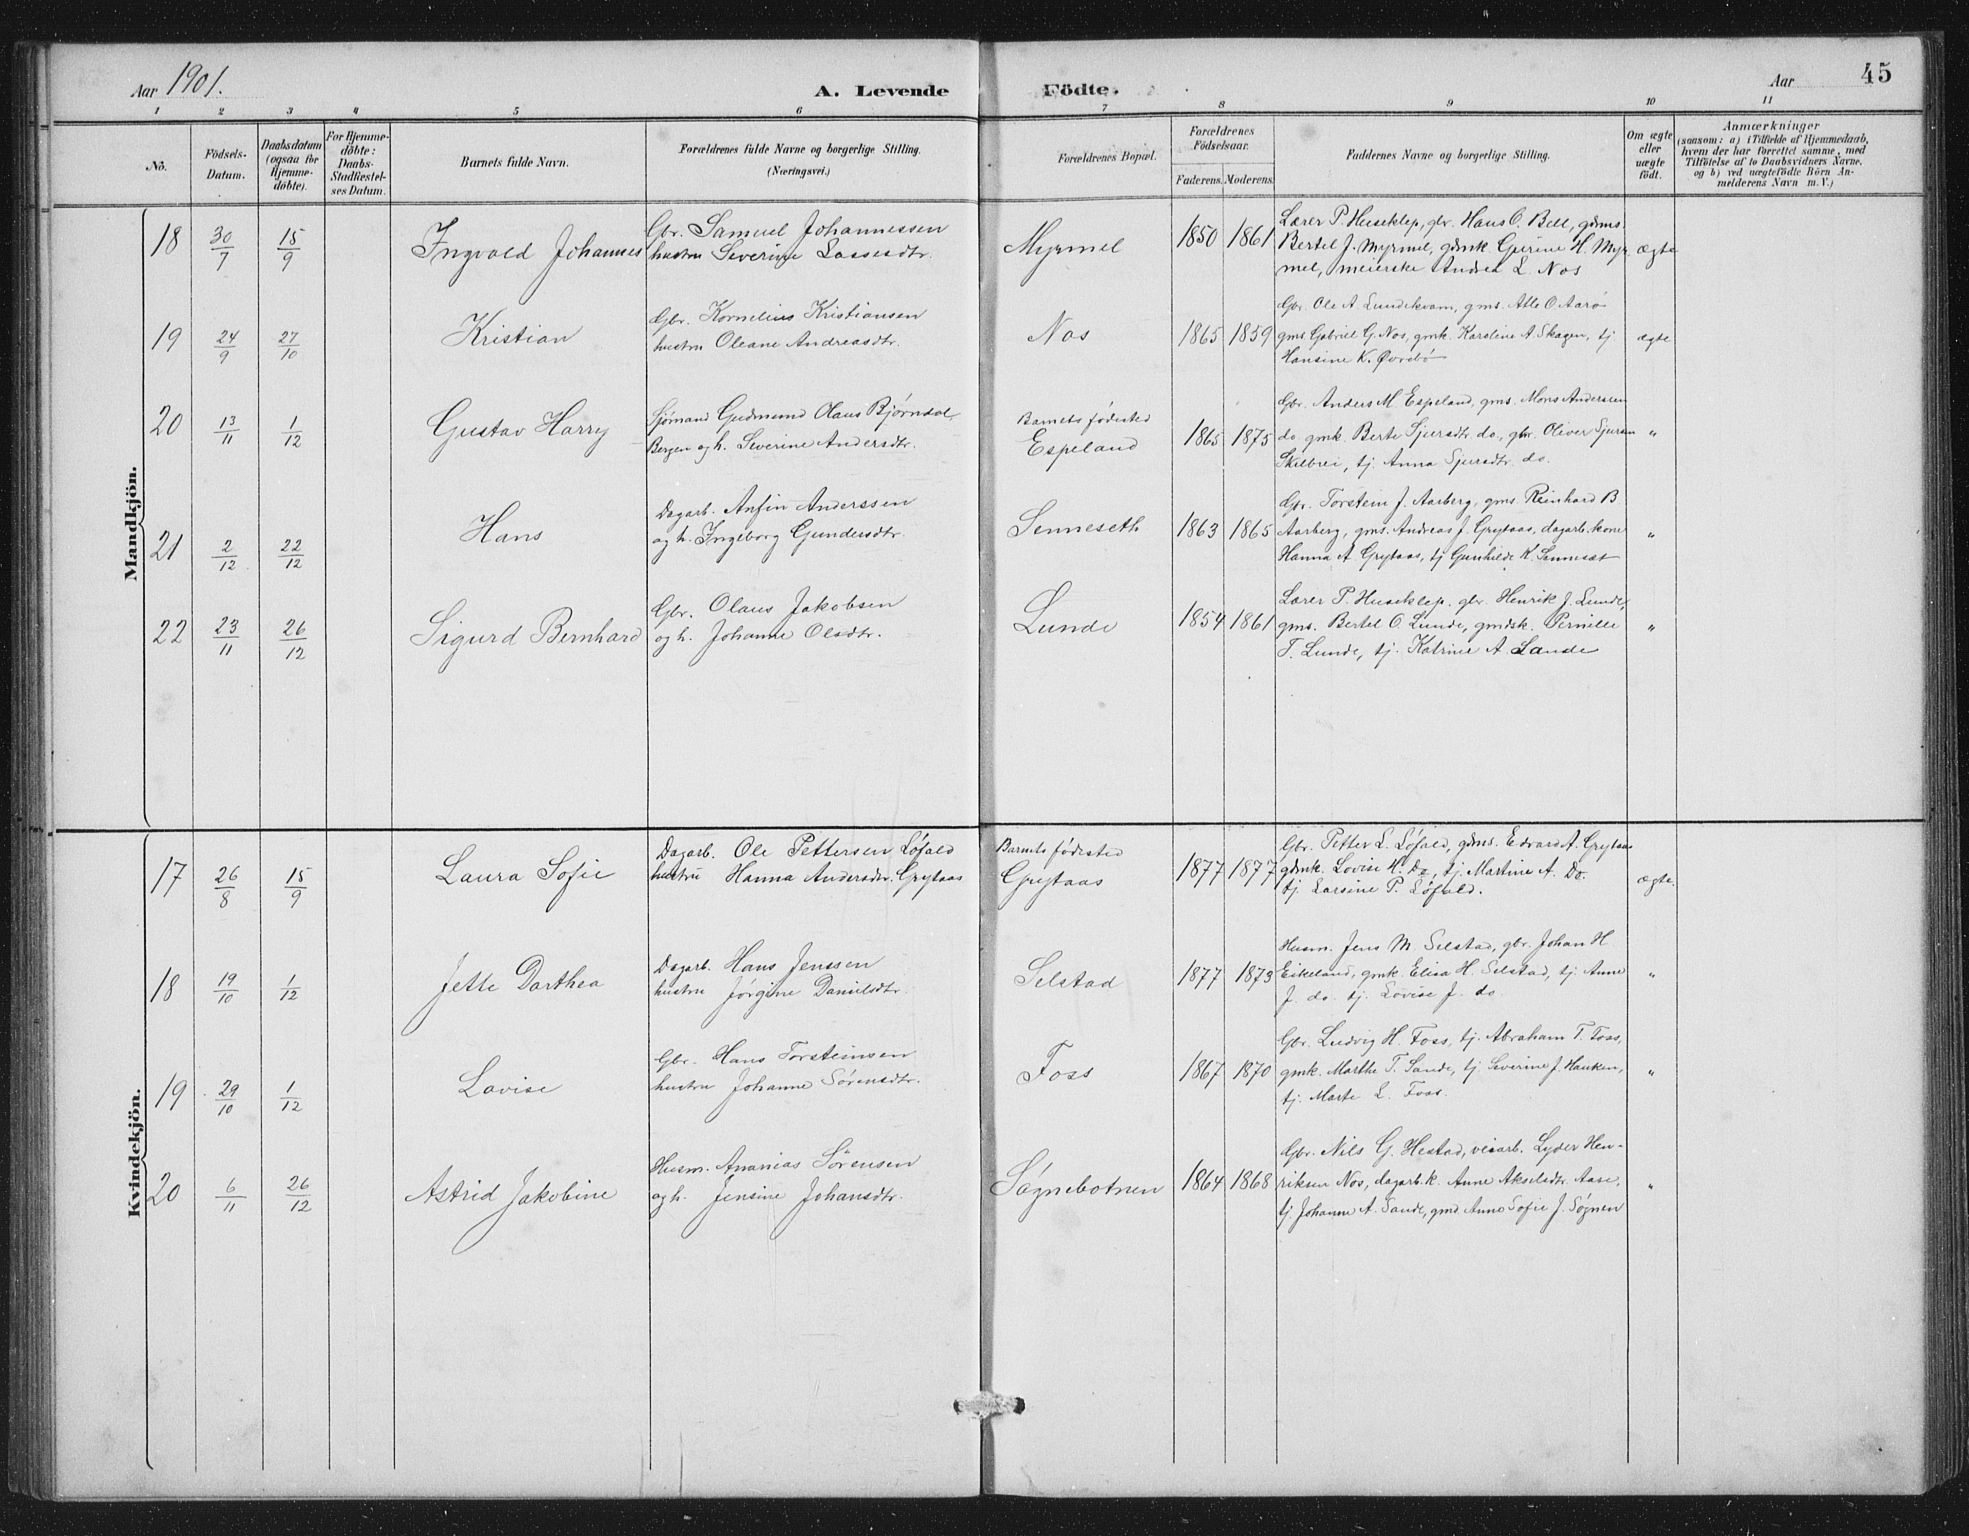 Aar 1901.
A. Levende
Födte.
Aar
45
1 2 3 4 5 6 7 8 9 10 11
Nö.
Födsels-
Datum.
Daabsdatum
(ogsaa for
Hjemme-
döbte).
For Hjemme-
döbte:
Daabs-
Stadfæstel-
ses Datum.
Barnets fulde Navn.
Forældrenes fulde Navne og borgerlige Stilling.
(Næringsvei.)
Forældrenes Bopæl.
Forældrenes
Födselsaar.
Faderens. Moderens.
Faddernes Navne og borgerlige Stilling.
Om ægte
eller
uægte
födt.
Anmærkninger
(saasom: a) i Tilfælde af Hjemmedaab,
hvem der har forrettet samme, med
Tilföielse af to Daabsvidners Navne,
og b) ved uægtefödte Börn An-
melderens Navn m. V.)
Mandkjön.
18 30/7 15/9 Ingvald Johannes
Gbr. Samuel Johannessen
hustru Severine Lassesdtr.
Myrmel 1850 1861
Lærer P. Huseklep, gbr. Hans O. Bell, gdms.
Bertel J. Myrmel, gdmk Gurine H. Myr
mel, meierske Andrea L. Nos
ægte
19 24/9 27/10 Kristian
Gbr. Kornelius Kristiansen
hustru Oleane Andreasdtr.
Nos 1865 1859
Gbr. Ole A. Lundekvam, gms. Atle O Aarö
gms Gabriel G. Nos, gmk. Karoline A. Skagen, tj
Hansine K. Øvrebö
ægte
20 13/11 1/12 Gustav Harry
Sjömand Gudmund Olaus Bjørndal
Bergen og h. Severine Andersdtr.
Barnets födested
Espeland 1865 1875
Gbr. Anders M. Espeland, gms. Mons Anderssen
do. gmk. Berte Sjursdtr. do., gbr. Oliver Sjursen
Skilbrei, tj. Anna Sjursdtr. do.
"
21 2/12 22/12 Hans
Dagarb. Anfin Anderssen
og h. Ingeborg Gundersdtr.
Senneseth 1863 1865
Gbr. Torstein J. Aarberg, gms. Reinhard B.
Aarberg, gms. Andreas J. Grytaas, dagarb. kone
Hanna A Grytaas, tj Gunhilde K. Sennesæt
"
22 23/11 26/12 Sigurd Bernhard
Gbr. Olaus Jakobsen
og h. Johanne Olsdtr.
Lunde 1854 1861
Lærer P. Huseklep. gbr. Henrik J. Lunde,
gms. Bertel O Lunde, gmdsk. Pernille
T. Lunde, tj. Katrine A. Sande
"
Kvindekjön.
17 26/8 15/9 Laura Sofie
Dagarb. Ole Pettersen Löfald
hustru Hanna Andersdtr. Grytaas
Barnets födested
Grytaas 1877 1877
Gbr. Petter L. Löfald, gdms. Edvard A. Grytaas
gdmk. Lovise H. Do, tj. Martine A. Do.
tj. Larsine P. Løfald.
ægte.
18 19/10 1/12 Jette Darthea
Dagarb. Hans Jenssen
hustru Jørgine Danielsdtr.
Selstad 1877 1873
Husm. Jens M. Selstad, gbr. Johan H.
Eikeland, gmk. Elisa H. Selstad, tj. Anne
J. do. tj. Lovise J. do.
"
19 29/10 1/12 Lovise
Gbr. Hans Torsteinsen
hustru Johanne Sörensdtr.
Foss 1867 1870
Gbr. Ludvig H. Foss, tj. Abraham T. Foss,
gmk. Marthe T. Sande, tj. Severine J. Hauken,
tj. Marte L. Foss.
"
20 6/11 26/12 Astrid Jakobine
Husm. Ananias Sörensen
og h. Jensine Johansdtr.
Søgnebotnen 1864 1868
Gbr. Nils G. Hestad, veiarb. Lyder Hen-
riksen Nos, dagarb. k. Anne Akselsdtr. Aase,
tj. Johanne A. Sande, gmd Anna Sofie J. Søgnen
"